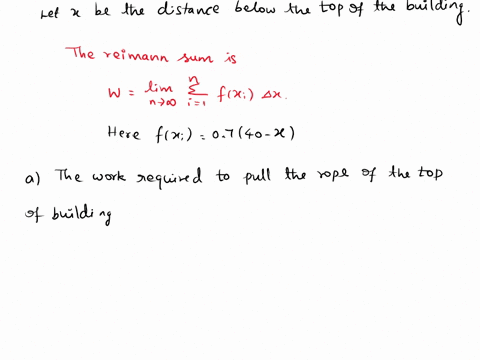 Let x be the distance below the top of the building.
The reimann sum is
W = lim n→∞ n Σ i=1 f(xi) Δx.
Here f(xi) = 0.7(40-x)
a) The work required to pull the rope of the top
of building